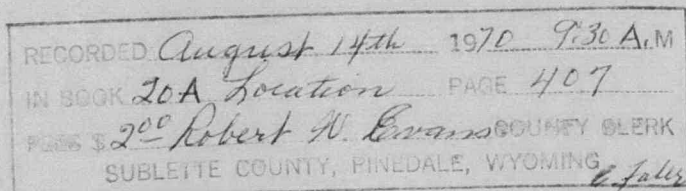 RECORDED August 14th 1970 9:30 A.M
IN BOOK 20A Location PAGE 407
FEES $ 2 00 Robert W. Evans COUNTY CLERK
SUBLETTE COUNTY, PINEDALE, WYOMING